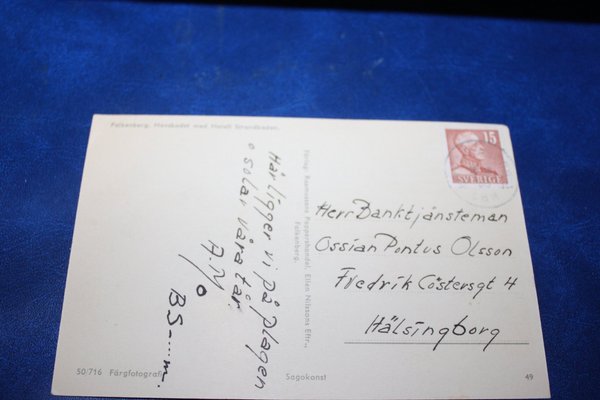 Falkenberg: Havsbadet med Hotell Strandbaden.
Här ligger vi på plagen
o solar våra tår.
A.N
o
BS-....m.
Förlag: Rasmussens Pappershandel, Ellen Nilssons Eftr.,
Falkenberg.
15
SVERIGE
Herr Banktjänsteman
Ossian Pontus Olsson
Fredrik Cöstersgt 4
Hälsingborg
50/716 Färgfotografi
Sagokonst
49